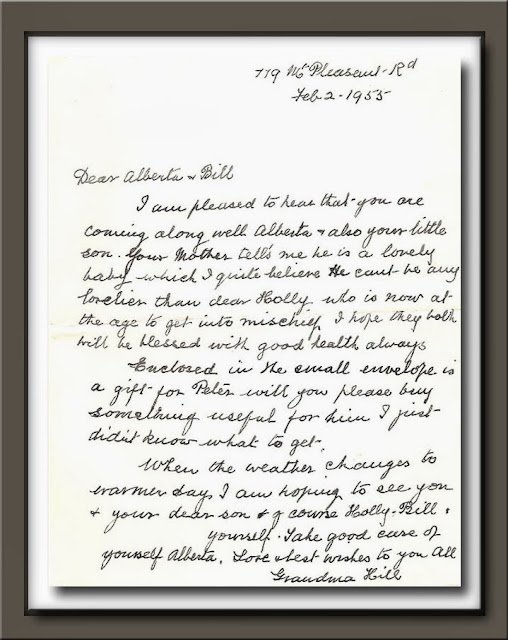 779 Mt Pleasant-Rd
Feb 2-1955
Dear Alberta & Bill
I am pleased to hear that you are
coming along well Alberta & also your little
son. Your Mother tells me he is a lovely
baby which I quite believe He cant be any
lovelier than dear Holly who is now at
the age to get into mischief, I hope they both
will be blessed with good health always
Enclosed in the small envelope is
a gift for Peter will you please buy
something useful for him I just
didn't know what to get.
When the weather changes to
warmer day, I am hoping to see you
& your dear son & of course Holly-Bill &
yourself. Take good care of
yourself Alberta. Love & best wishes to you All
Grandma Hill